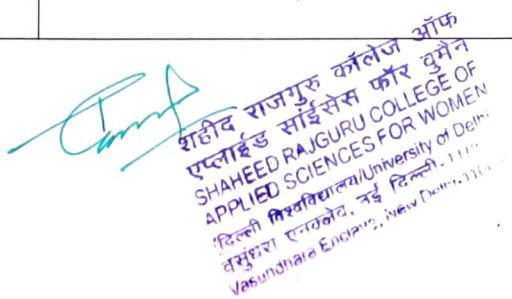 शहीद राजगुरु कॉलेज ऑफ
एप्लाईड साईंसेस फॉर वुमैन
SHAHEED RAJGURU COLLEGE OF
APPLIED SCIENCES FOR WOMEN
दिल्ली विश्वविद्यालय/University of Delhi
वसुंधरा एनक्लेव, नई दिल्ली-
Vasundhara Enclave, New Delhi-